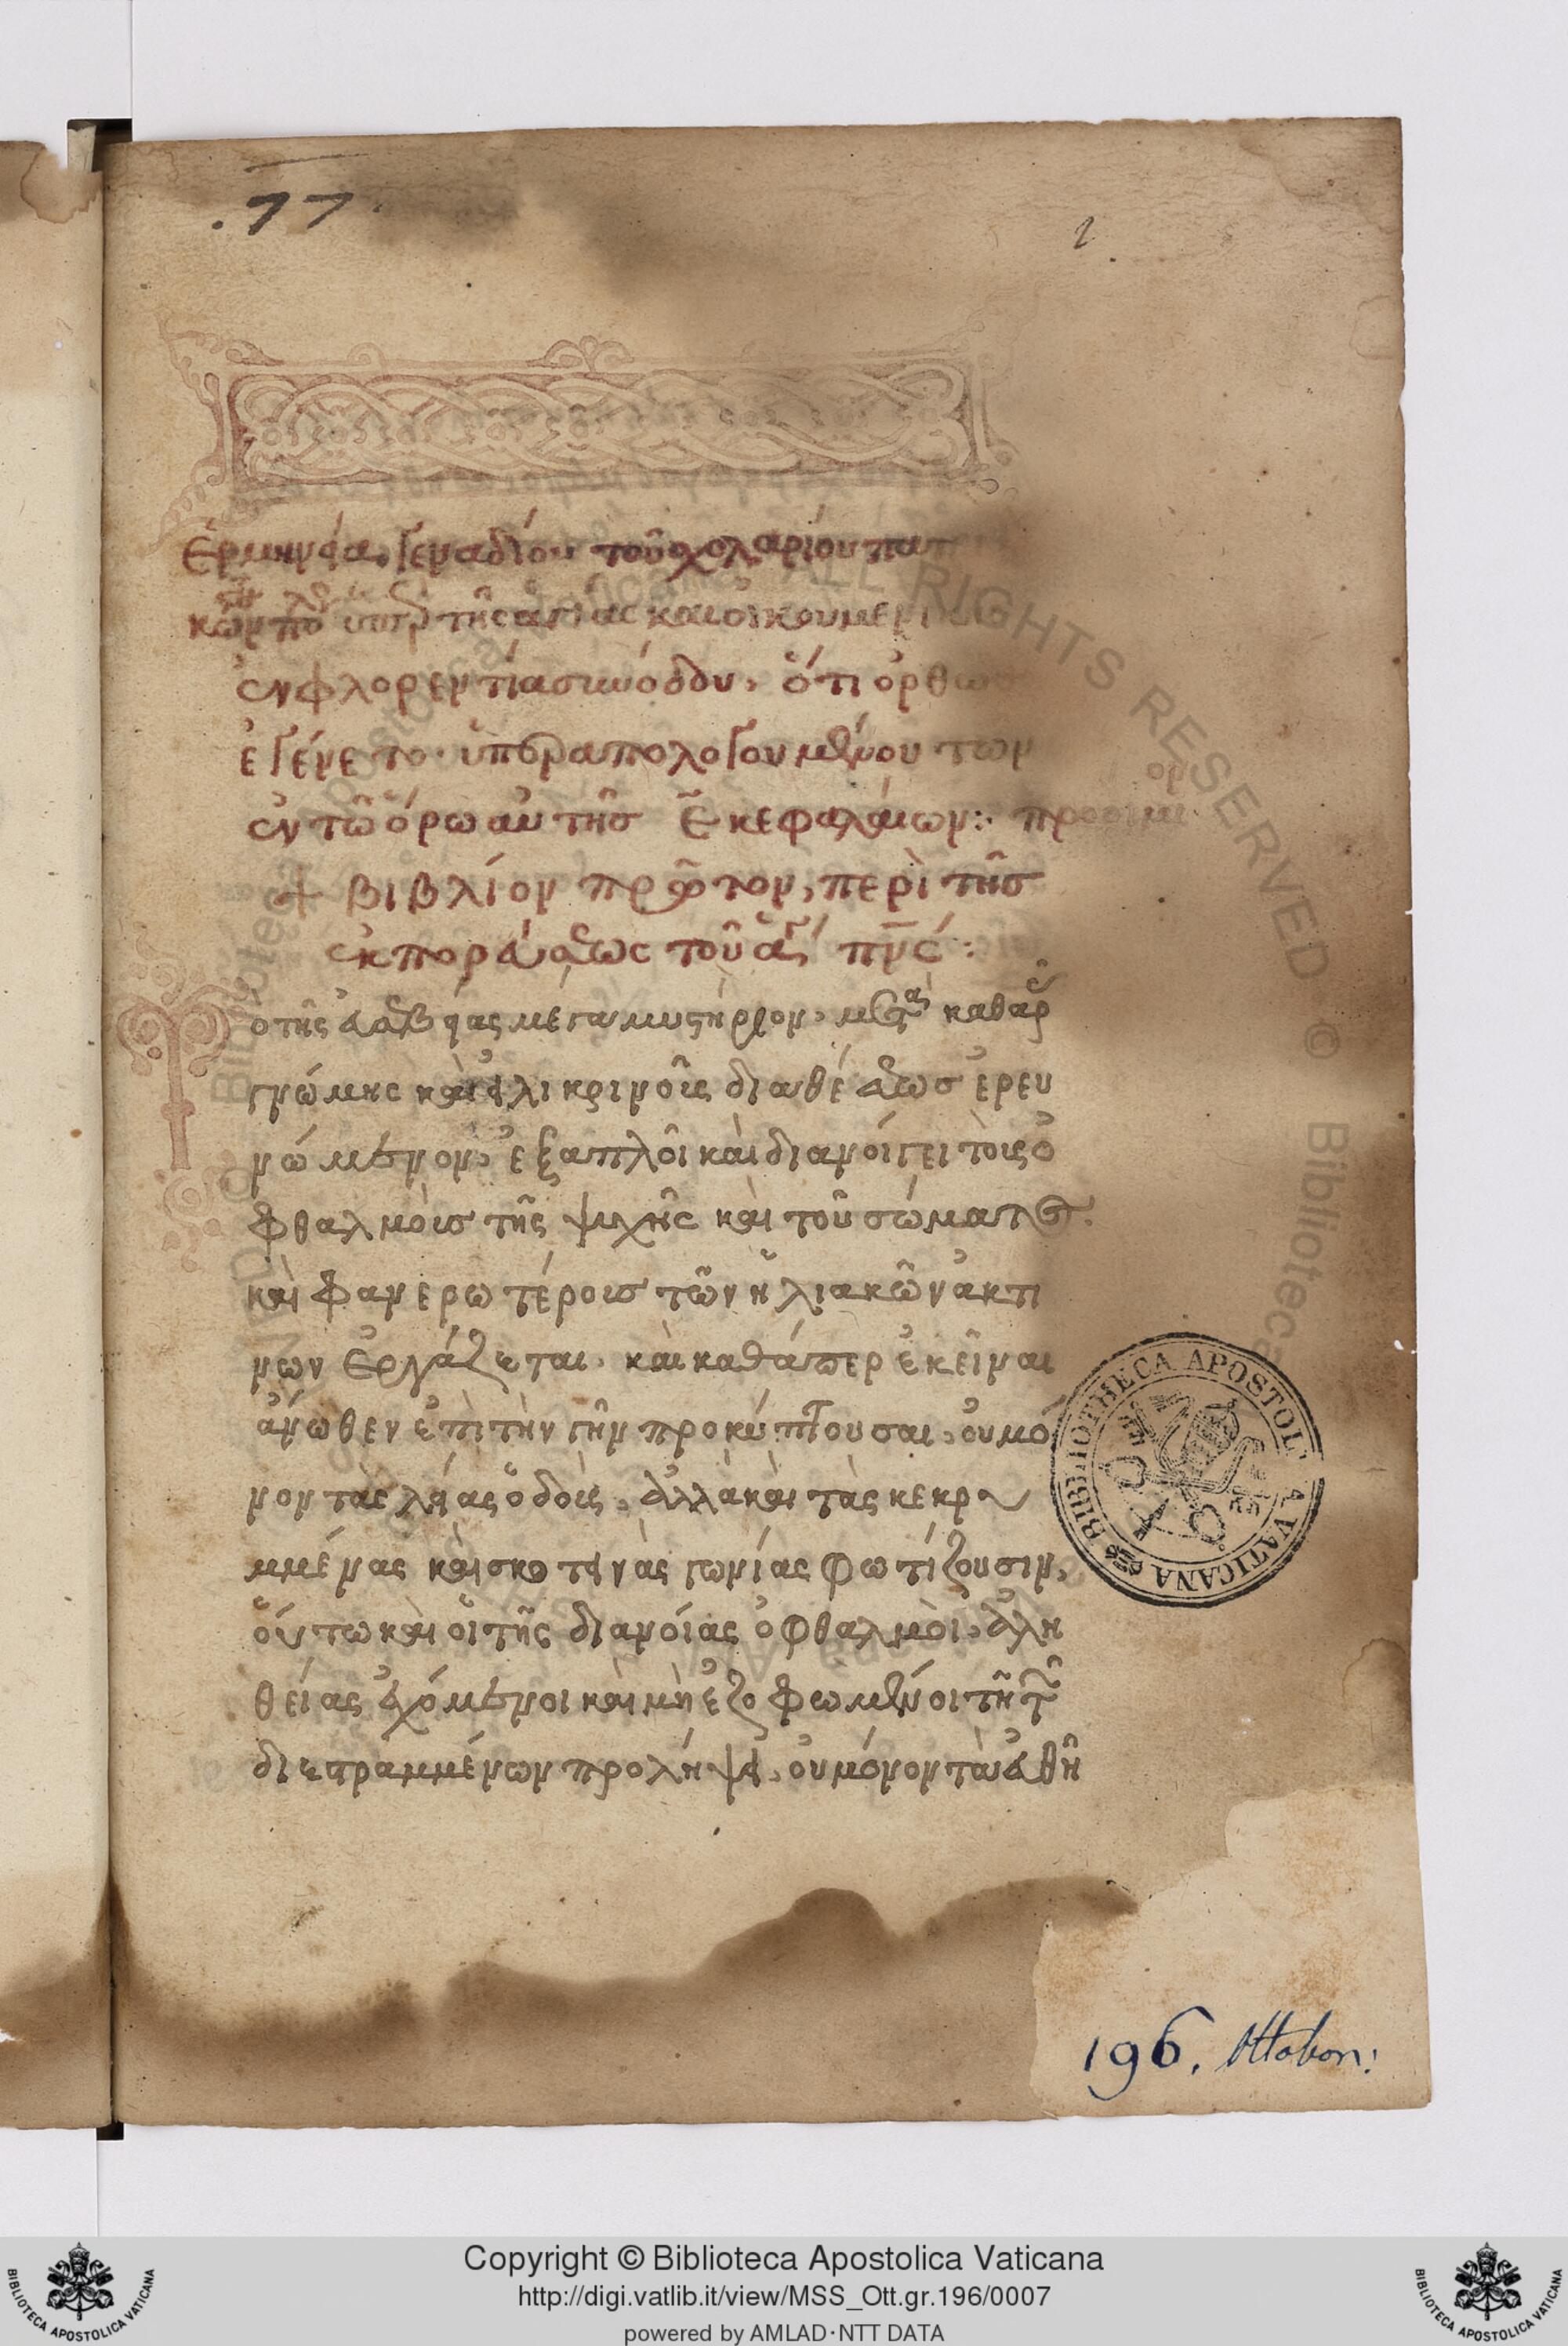 .77.
1
Ἑρμηνεία Γεναδίου τοῦ Σχολαρίου πατ
κωνπο ὑπὲρ τῆς ἁγίας καὶ οἰκουμενι
ἐν φλορεντία συνόδου, ὅτι ὀρθῶς
ἐγένετο· ὑπεραπολογουμένου τῶν
ἐν τῶ ὅρω αὐτῆς ε̄ κεφαλαίων: προοίμι
+ βιβλίον πρῶτον, περὶ τῆς
ἐκπορεύσεως τοῦ ἁγ πνς:
ὸ τῆς εὐσεβείας μέγα μυστήριον, μετὰ καθαρᾶς
γνώμης καὶ εἰλικρινοῦς διαθέσεως ἐρευ
νώμενον, ἐξαπλοῖ καὶ διανοίγει τοῖς ὀ
φθαλμοῖς τῆς ψυχῆς καὶ τοῦ σώματος.
καὶ φανερωτέροις τῶν ἡλιακῶν ἀκτί
νων ἐργάζεται. καὶ καθάπερ ἐκεῖναι
ἄνωθεν ἐπὶ τὴν γῆν προκύπτουσαι, οὐ μό
νον τὰς λείας ὁδοὺς, ἀλλὰ καὶ τὰς κεκρυ
μμένας καὶ σκοτεινὰς γωνίας φωτίζουσιν,
οὕτω καὶ οἱ τῆς διανοίας ὀφθαλμοὶ, ἀλη
θείας ἐχόμενοι καὶ μὴ ἐζοφωμένοι τῆ τῶν
διεστραμμένων προλήψει, οὐ μόνον τὰ εὐθῆ
BIBLIOTHECA APOSTOL. VATICANA
196. Ottobon:
Copyright © Biblioteca Apostolica Vaticana
http://digi.vatlib.it/view/MSS_Ott.gr.196/0007
powered by AMLAD·NTT DATA
BIBLIOTECA APOSTOLICA VATICANA
BIBLIOTECA APOSTOLICA VATICANA